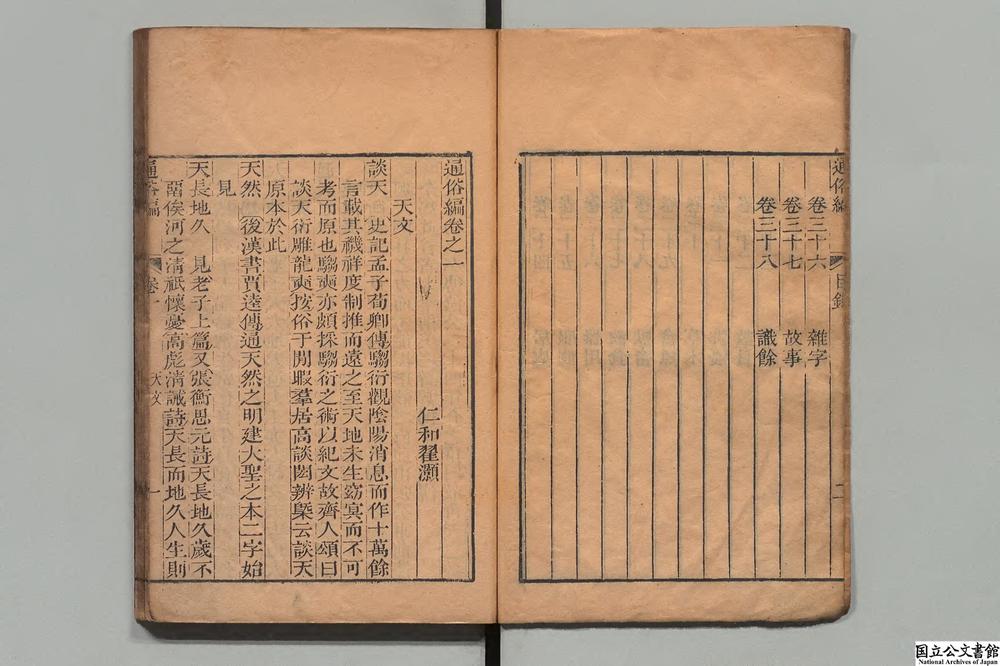 通俗編 目錄 二
卷三十六 雜字
卷三十七 故事
卷三十八 識餘
通俗編卷之一
仁和翟灝
天文
談天 史記孟子荀卿傳騶衍觀陰陽消息而作十萬餘
言載其禨祥度制推而遠之至天地未生窈冥而不可
考而原也騶奭亦頗採騶衍之術以紀文故齊人頌曰
談天衍雕龍奭按俗于閒暇羣居高談闊辨槩云談天
原本於此
天然 後漢書賈逵傳通天然之明建大聖之本二字始
見
天長地久 見老子上篇又張衡思元詩天長地久歲不
畱俟河之清祇懷憂高彪清誡詩天長而地久人生則
通俗編 卷一 天文 一
国立公文書館
National Archives of Japan